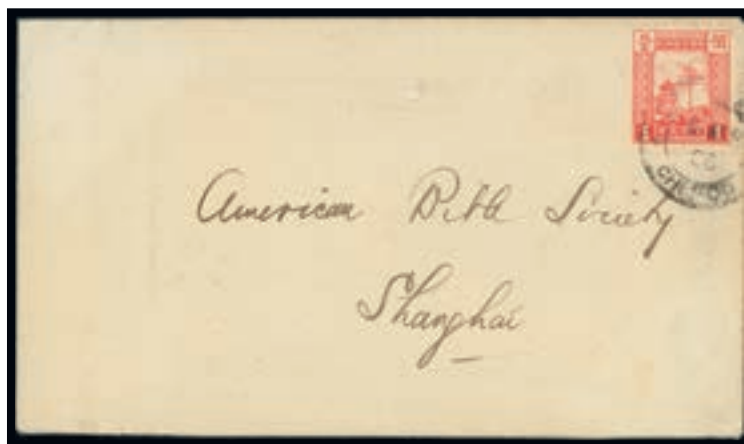 American Bible Society
Shanghai
CHEFOO